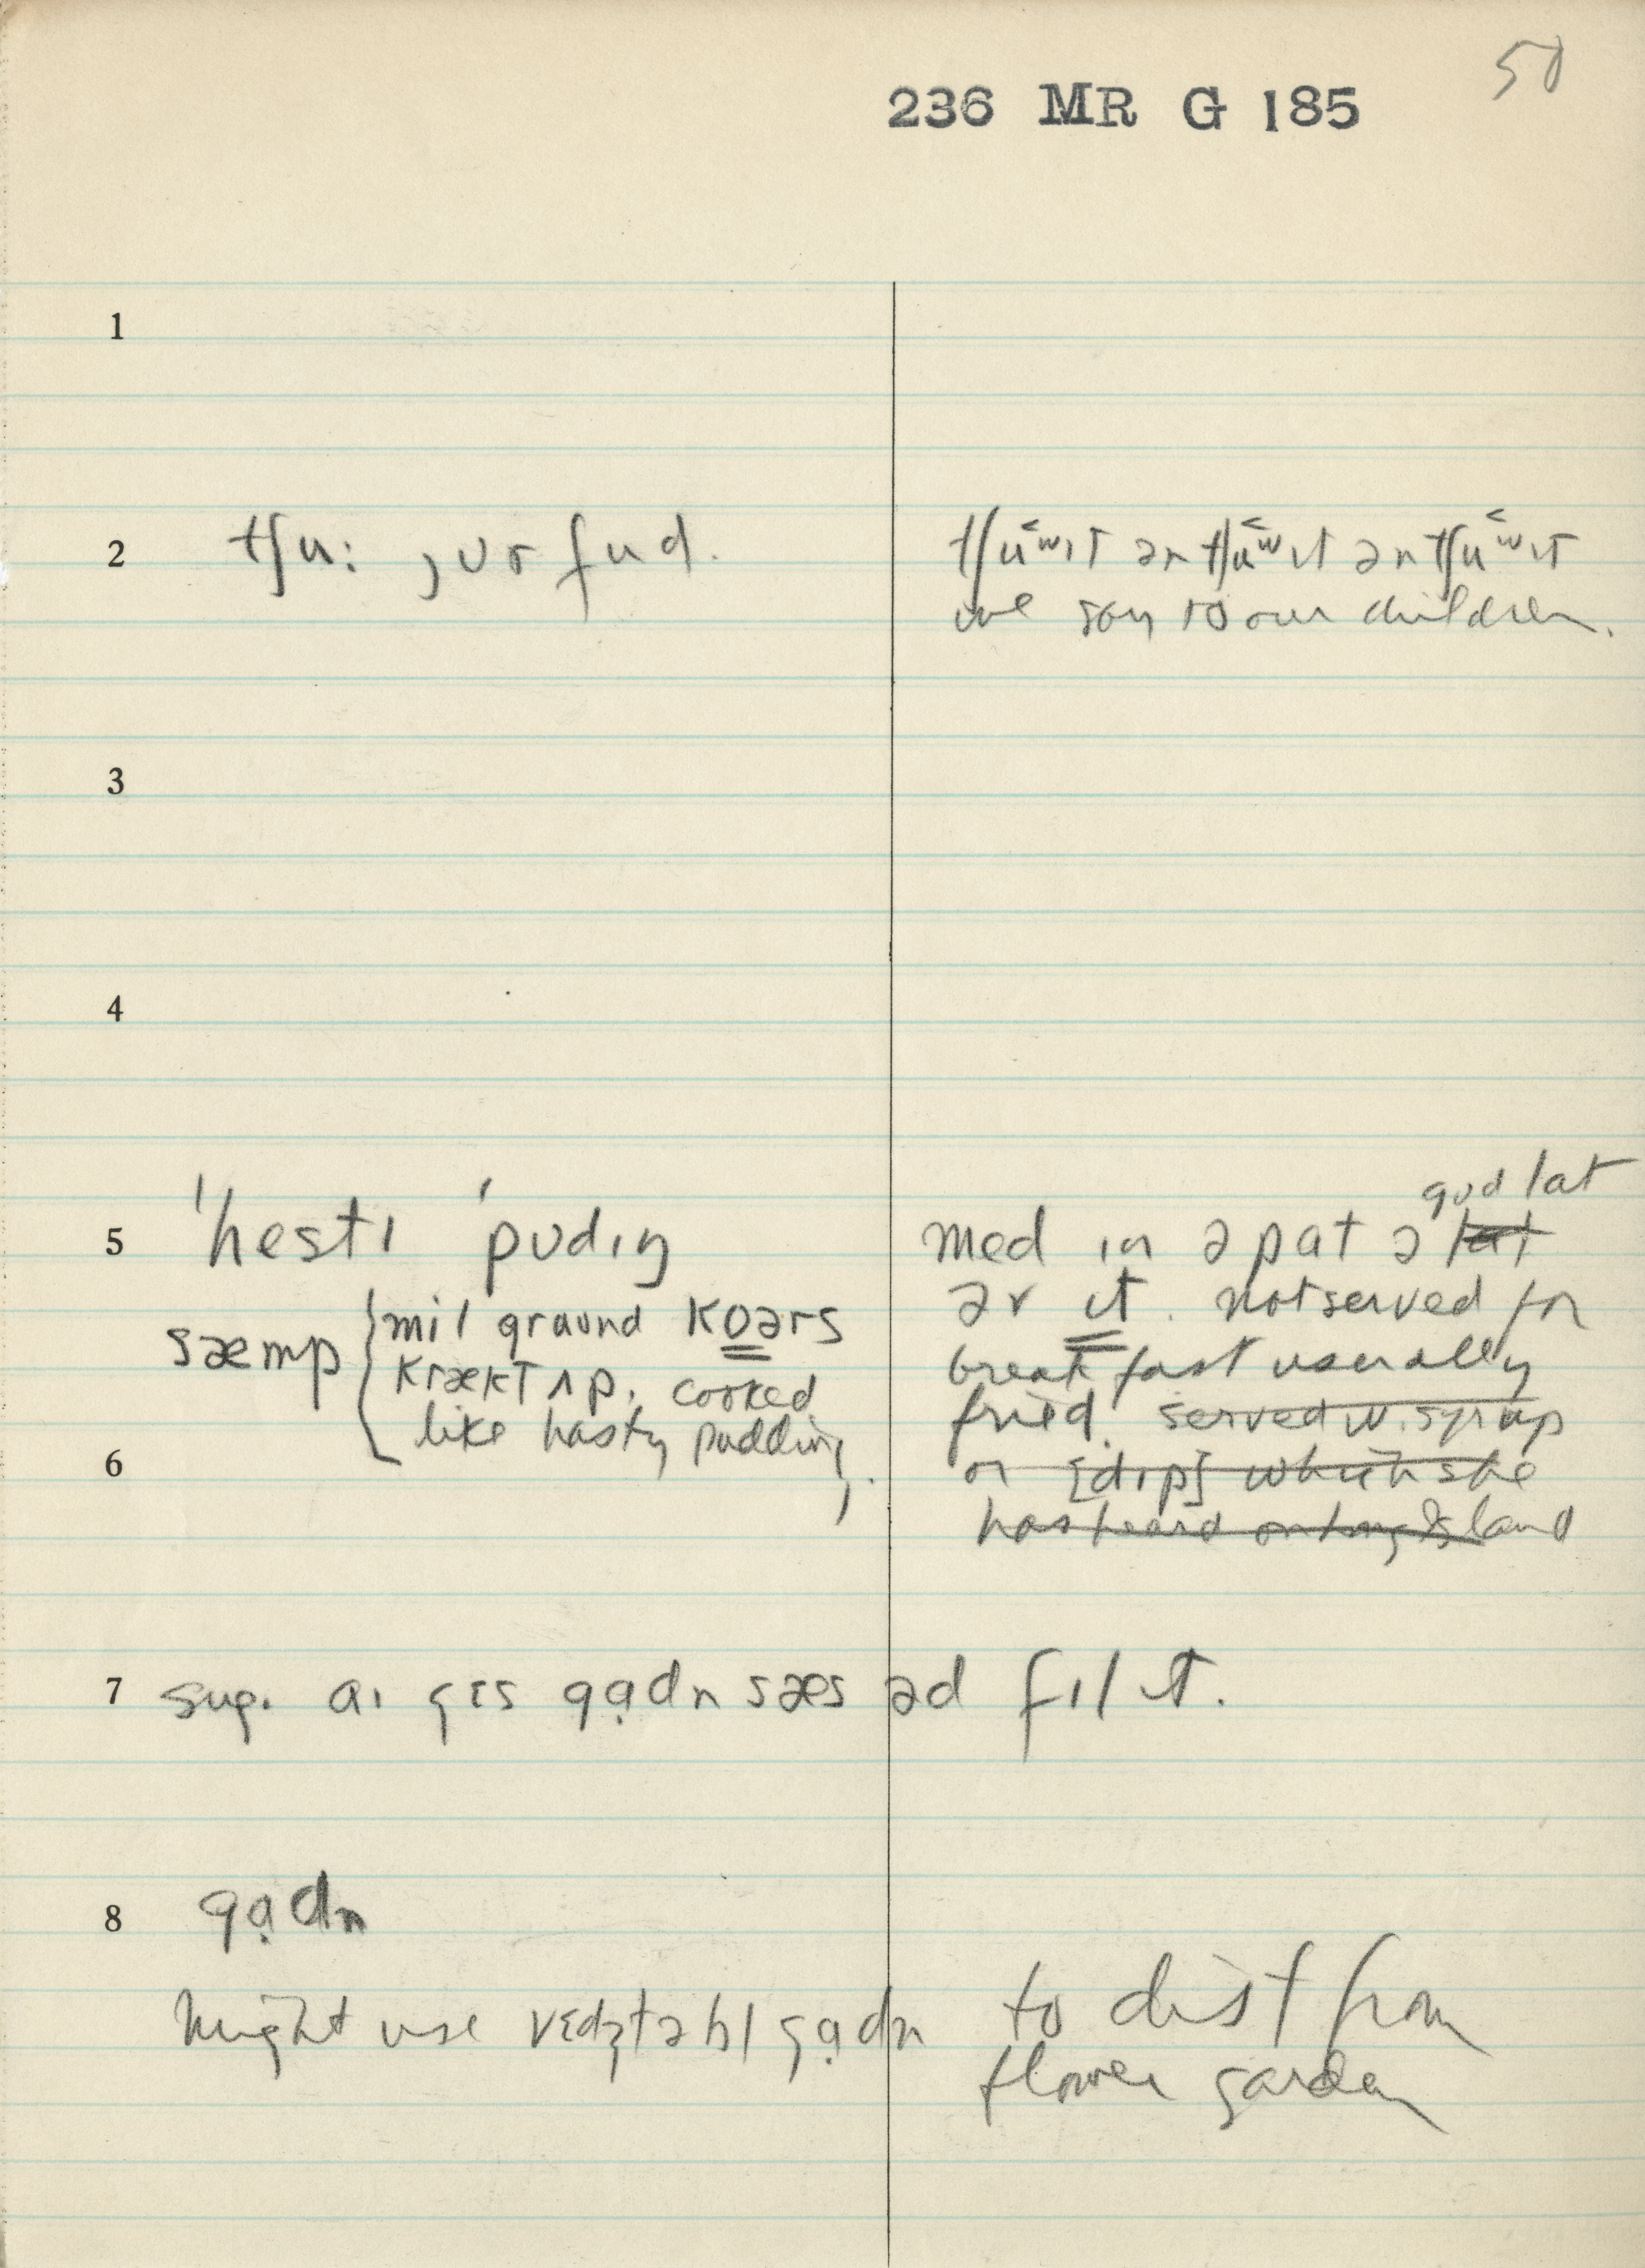 50
236 MR G 185
1
2 tʃu: jʊr fud. tʃuʷɪt ən tʃuʷɪt ən tʃuʷɪt
we say to our children.
3
4
gʊd lat
5 ˈhestɪ ˈpʊdɪŋ med ɪn ə pat ə lat
mil graʊnd koərs əv ɪt. not served for
sæmp krækt ʌp. cooked breakfast usually
like hasty pudding fried. served w. syrup
6 or [dɪp] which she
has heard on Long Island
7 sug. aɪ gɛs gạdn sæs əd fɪl ɪt.
8 gạdn
might use vɛdʒtəbl gạdn to dist from
flower garden